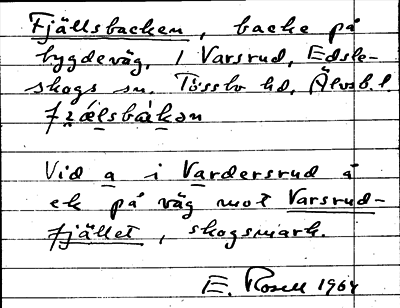 Fjällsbacken, backe på
bygdeväg, i Varsrud, Edsle-
skogs sn. Tössbo hd, Älvsb. l.
Vid a i Vardersrud å
ek på väg mot Varsrud-
fjället, skogsmark.
E. Rosell 1964